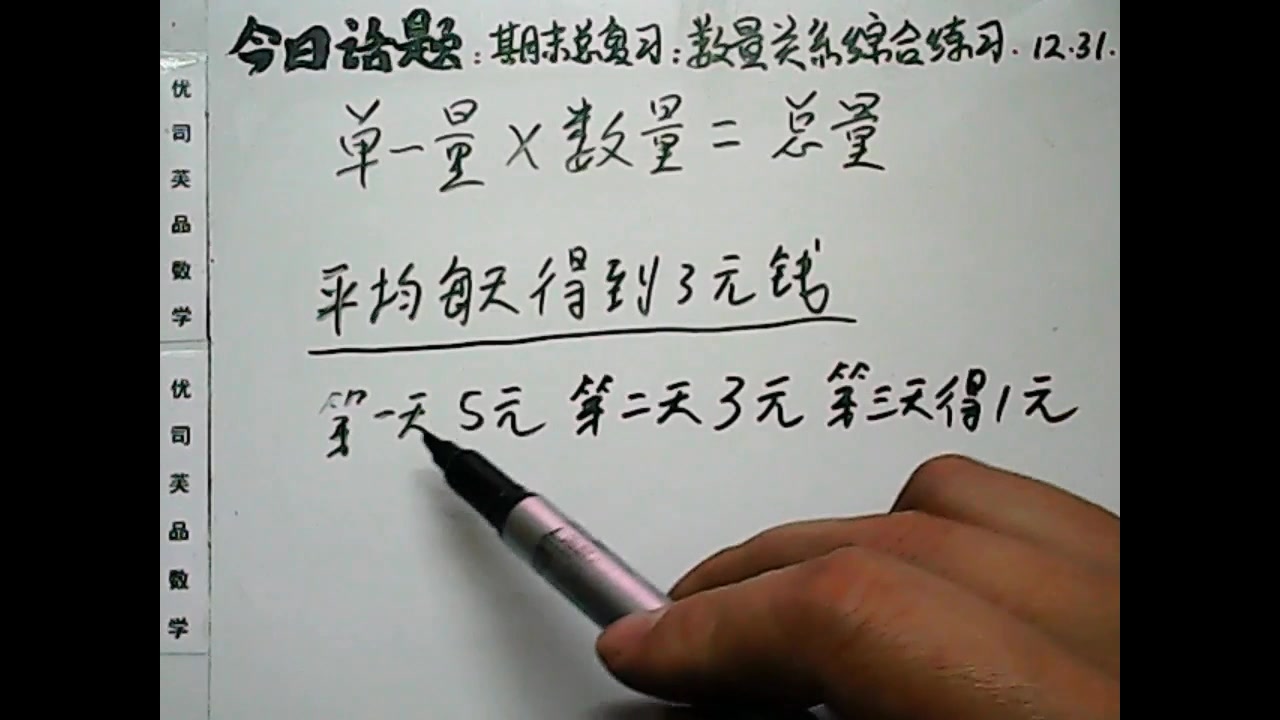 今日话题:期末总复习:数量关系综合练习.12.31.
单一量×数量=总量
平均每天得到3元钱
第一天5元 第二天3元 第三天得1元
优司芙品数学
优司芙品数学